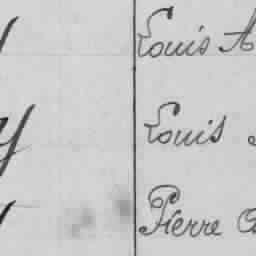 Louis A
y Louis
Pierre